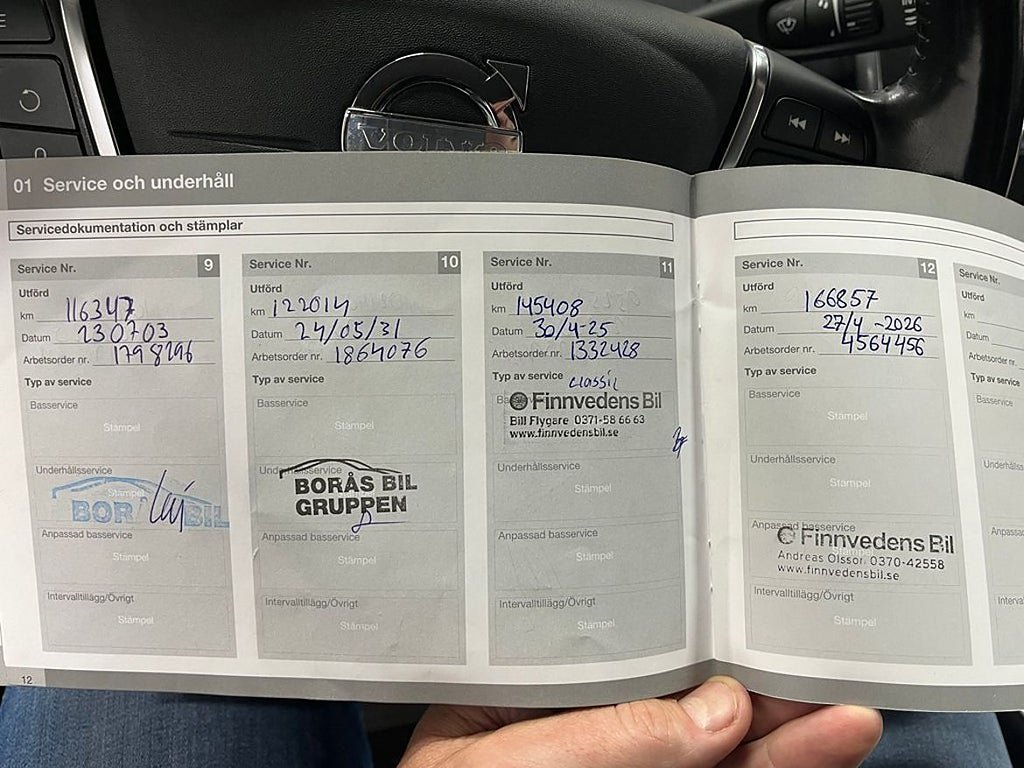 VOLVO
01 Service och underhåll
Servicedokumentation och stämplar
Service Nr. 9
Utförd
km 116347
Datum 230703
Arbetsorder nr. 1798296
Typ av service
Basservice
Stämpel
Underhållsservice
Stämpel
BORÅS BIL
Anpassad basservice
Stämpel
Intervalltillägg/Övrigt
Stämpel
12
Service Nr. 10
Utförd
km 122014
Datum 24/05/31
Arbetsorder nr. 1864076
Typ av service
Basservice
Stämpel
Underhållsservice
BORÅS BIL
GRUPPEN
Anpassad basservice
Stämpel
Intervalltillägg/Övrigt
Stämpel
Service Nr. 11
Utförd
km 145408
Datum 30/4-25
Arbetsorder nr. 1332428
Typ av service classic
FinnvedensBil
Bill Flygare 0371-58 66 63
www.finnvedensbil.se
Underhållsservice
Stämpel
Anpassad basservice
Stämpel
Intervalltillägg/Övrigt
Stämpel
Service Nr. 12
Utförd
km 166857
Datum 27/4 -2026
Arbetsorder nr. 4564456
Typ av service
Basservice
Stämpel
Underhållsservice
Stämpel
Anpassad basservice
FinnvedensBil
Andreas Olsson 0370-42558
www.finnvedensbil.se
Intervalltillägg/Övrigt
Stämpel
Service Nr.
Utförd
km
Datum
Arbetsorder nr.
Typ av service
Basservice